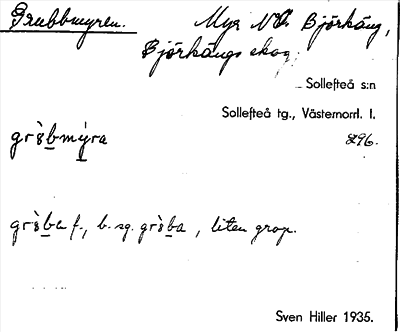 Grubbmyren. Myr NV Björkäng,
Björkängs skog
Sollefteå s:n
Sollefteå tg., Västernorrl. l.
gròb̲mýra 296.
gròb̲a f., b. sg. gròb̲a, liten grop.
Sven Hiller 1935.